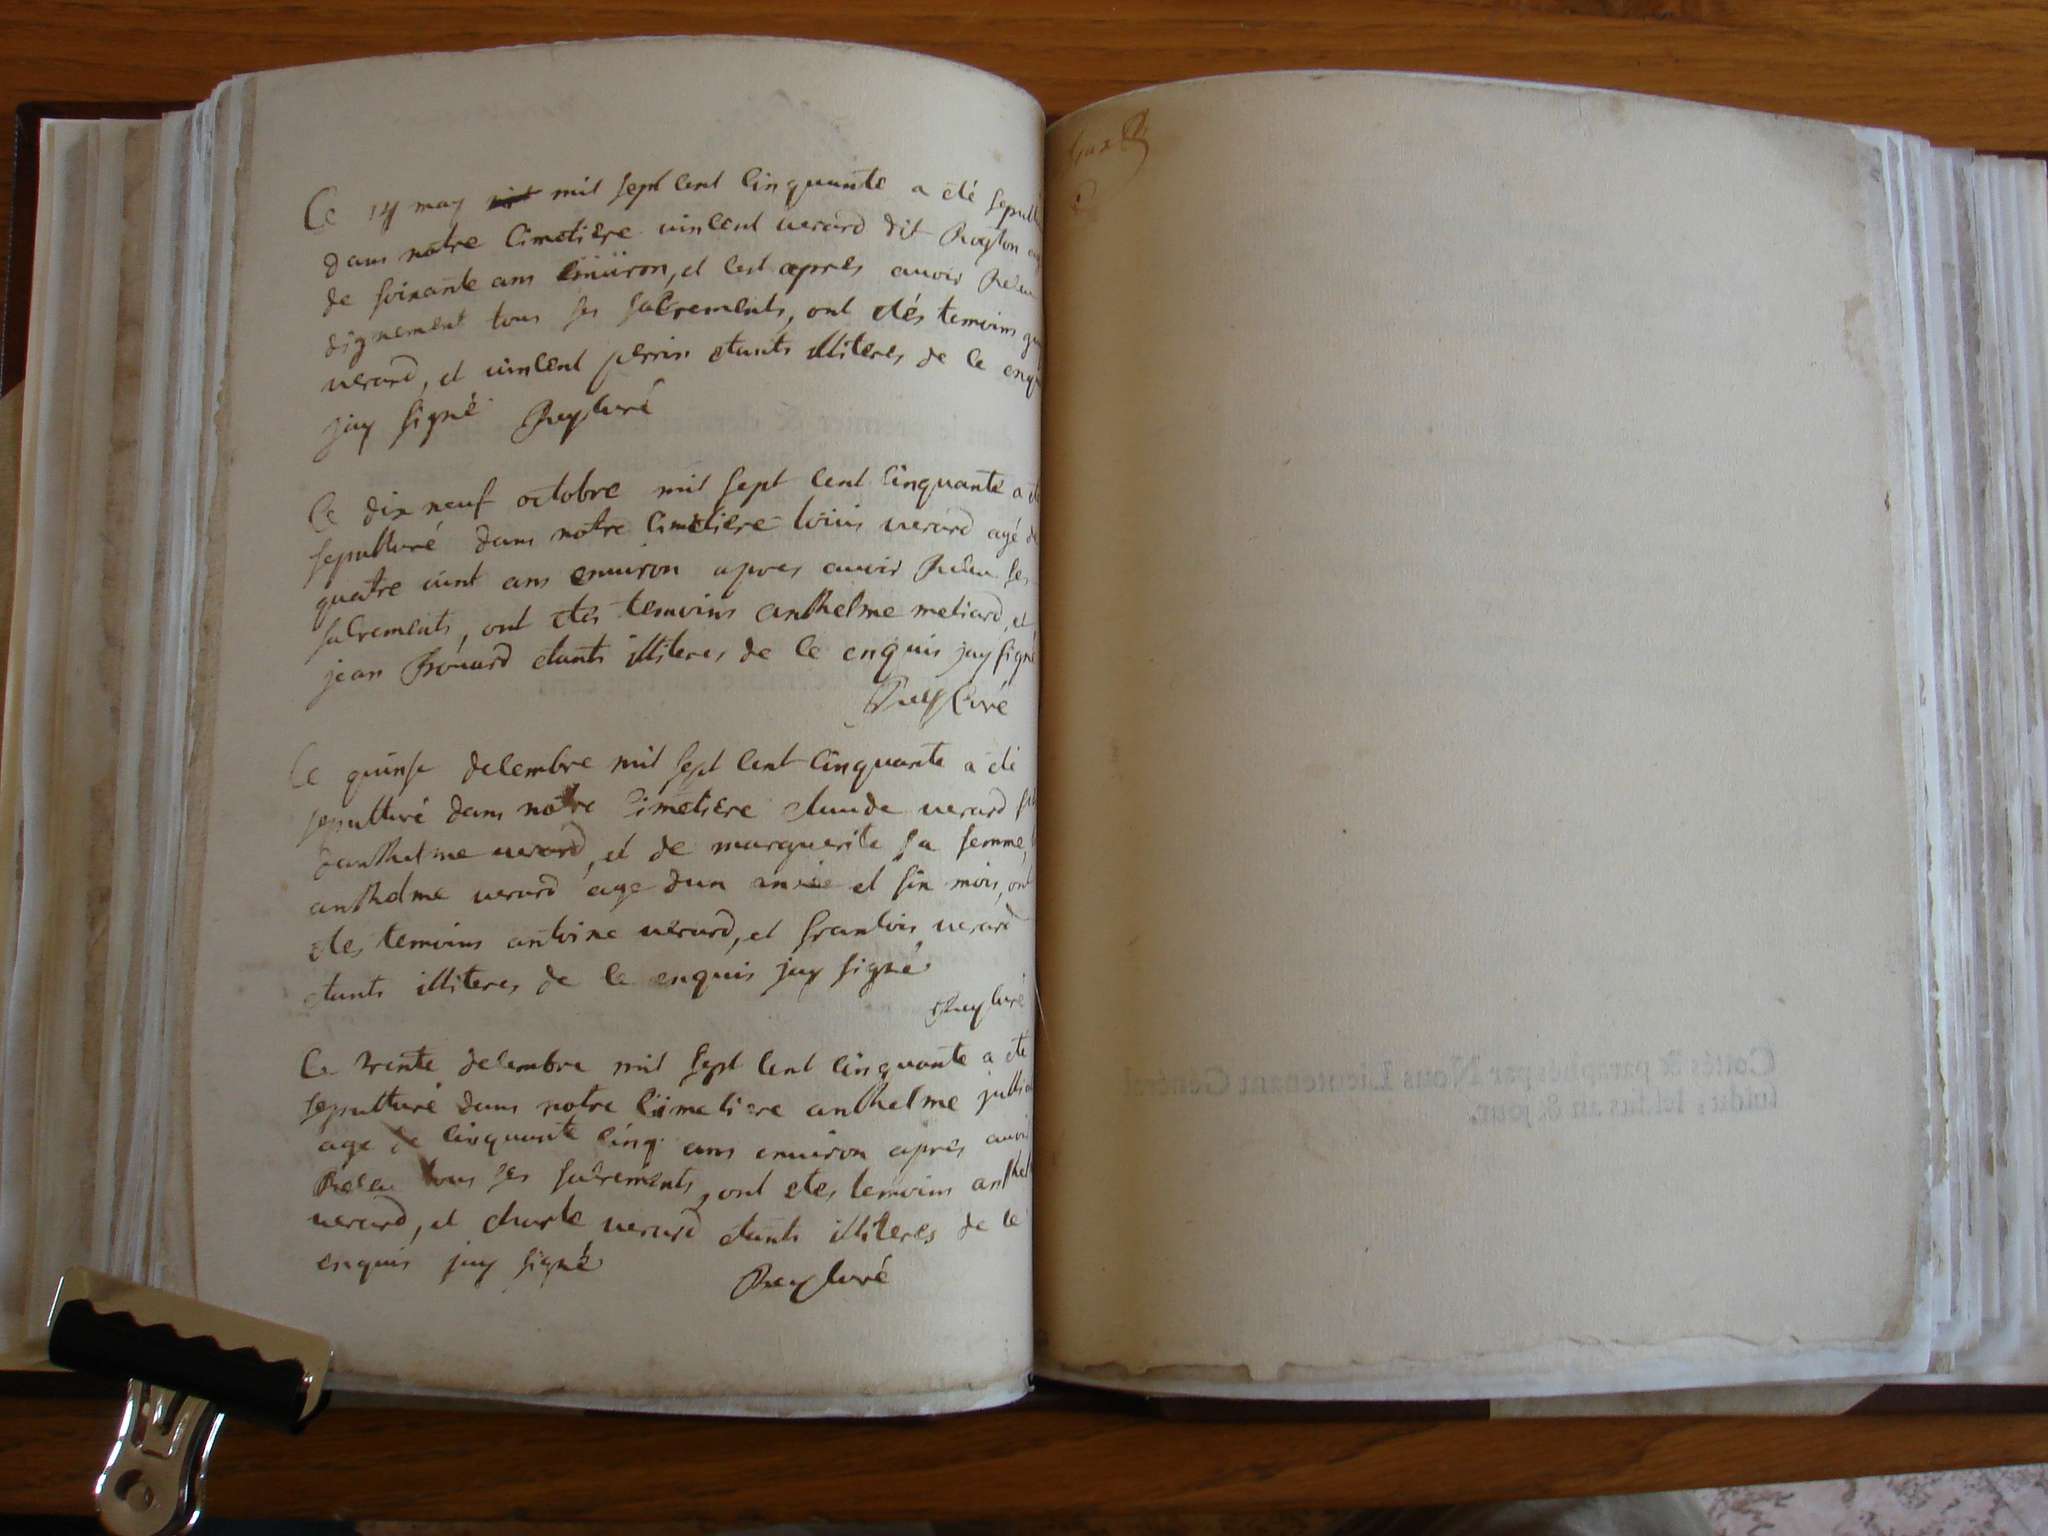 Ce 14 may mil sept cent cinquante a été sepult
dans notre cimetiere vincent verard dit
de soixante ans environ, et cest apres avoir Receu
dignement tous ses sacrements, ont étés temoins
verard, et vincent perrin etants illiteres de ce enq
jay signé Rey curé
Ce dix neuf octobre mil sept cent cinquante a été
sepulturé dans notre cimetiere loüis verard agé de
quatre vint ans environ apres avoir Receu ses
sacrements, ont étés temoins anthelme metiard, et
jean etants illiteres de ce enquis jay signé
Rey Curé
Ce quinse decembre mil sept cent cinquante a été
sepulturé dans notre cimetiere claude verard fils
danthelme verard, et de marguerite sa femme,
anthelme verard age dun et six mois, ont
étes temoins antoine verard, et francois verard
etants illiteres de ce enquis jay signé
Rey curé
Ce trente decembre mil sept cent cinquante a été
sepulturé dans notre cimetiere anthelme
age de cinquante cinq ans environ apres avoir
Receu tous ses sacrements, ont étes temoins anthel
verard, et charle verard etants illiteres de ce
enquis jay signé
Rey curé
Cottés & paraphés par Nous Lieutenant Général
susdit, lesdits an & jour.